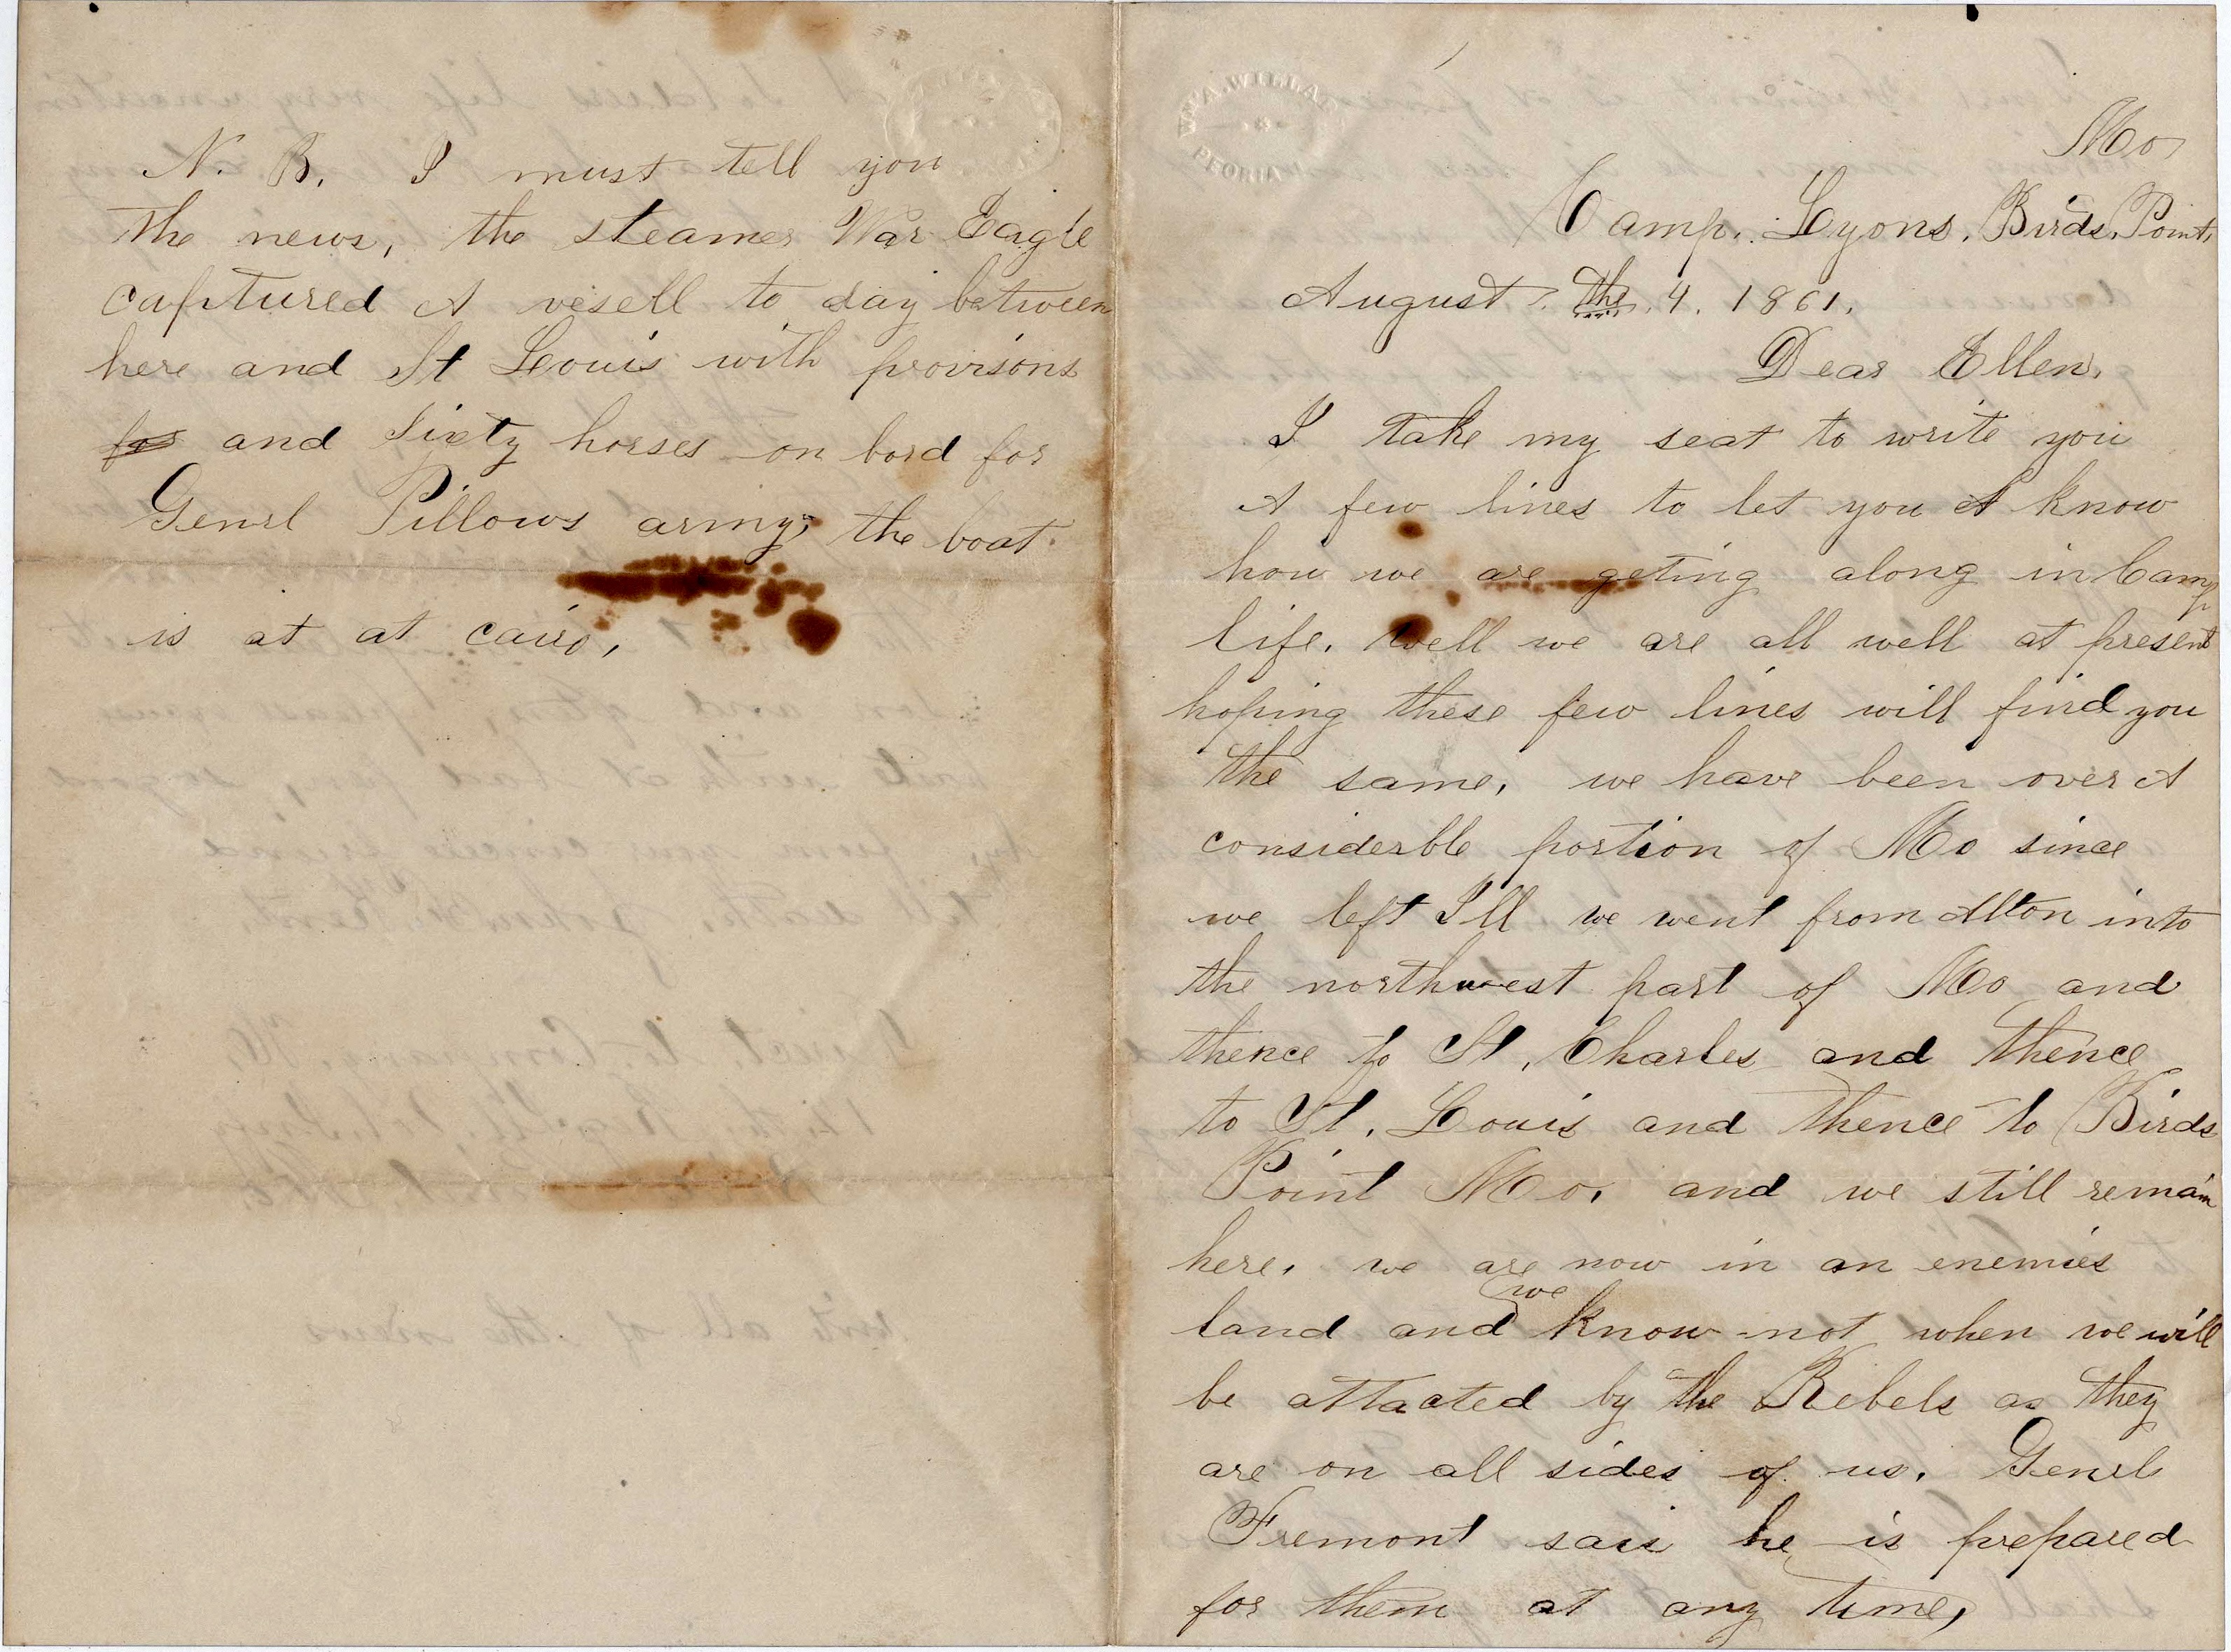 N. B. I must tell you
the news, the steamer War Eagle
captured A vesell to day between
here and St Louis with provisons
for and Sixty horses on bord for
Genrl Pillows army, the boat
is at at cairo,
W.A. WILLAR
PEORIA
Mo,
Camp. Lyons. Birds. Point,
August. the. 4. 1861.
Dear Ellen.
I take my seat to write you
A few lines to let you A know
how we are geting along in Camp
life. well we are all well at present
hoping these few lines will find you
the same, we have been over A
considerble portion of Mo since
we left Ill we went from Alton into
the northwest part of Mo and
thence to St. Charles and thence
to St. Louis and thence to Birds
Point Mo, and we still remain
here, we are now in an enemies
land and we know not when we will
be attacted by the Rebels as they
are on all sides of us. Genrl
Fremont sais he is prepared
for them at any time,